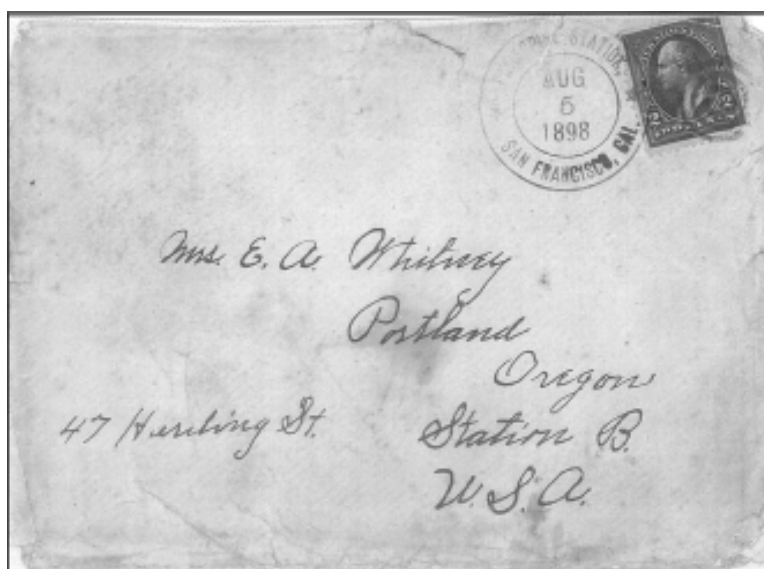 PHILIPPINE STATION,
AUG
5
1898
SAN FRANCISCO, CAL.
Mrs. E. A. Whitney
Portland
Oregon
47 Harding St. Station B.
U.S.A.